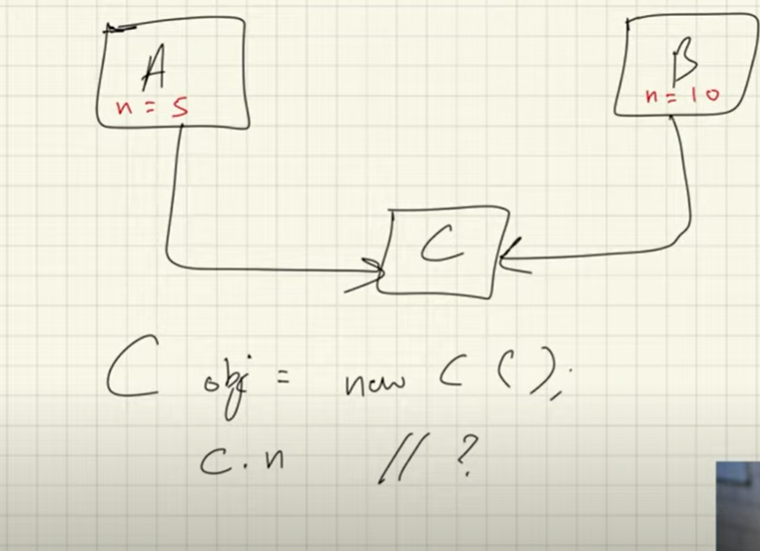 A
n = 5
B
n = 10
C
C obj = new C ();
C.n // ?